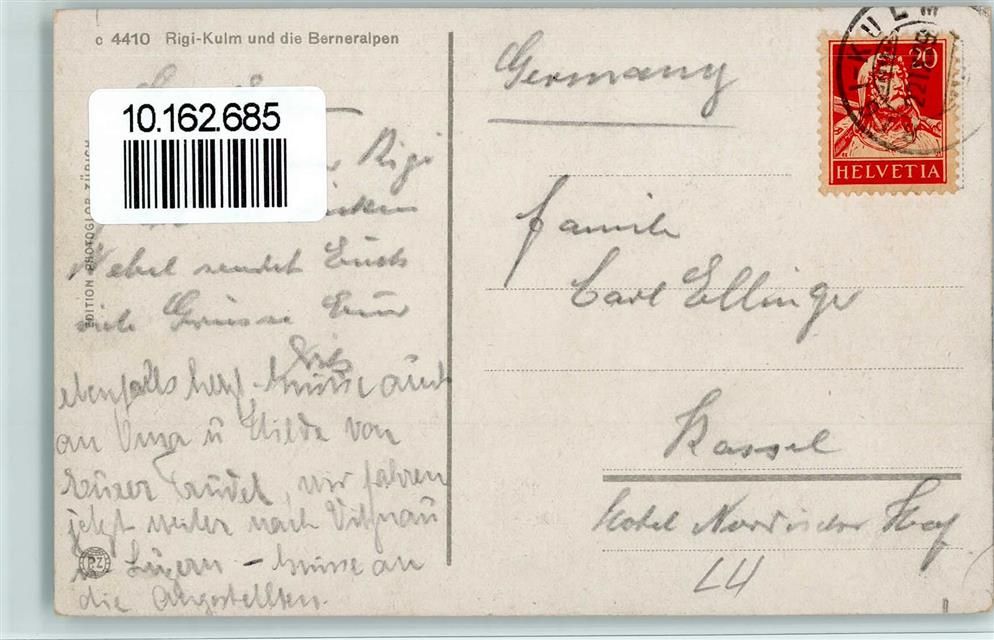 c 4410 Rigi-Kulm und die Berneralpen
10.162.685
EDITION PHOTOGLOB ZÜRICH
Rigi
Nebel sendet Euch
viele Grüsse Euer
Fritz
ebenfalls herzl. Grüsse auch
an Oma u Hilde von
Eurer Trudel, wir fahren
jetzt weiter nach Vitznau
Luzern – Grüsse an
die Angestellten.
PZ
Germany
20
HELVETIA
Familie
Carl Ellinger
Kassel
Hotel Nordischer Hof